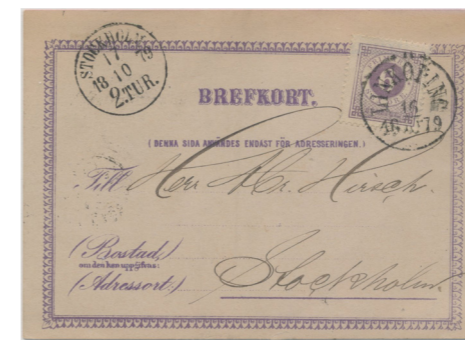 STOCKHOLM
17
18 10 79
2.TUR.
KÖPING
16
1879
BREFKORT.
(DENNA SIDA ANVÄNDES ENDAST FÖR ADRESSERINGEN.)
Till Herr Hirsch.
(Bostad)
om den kan uppgifvas:
(Adressort:) Stockholm.